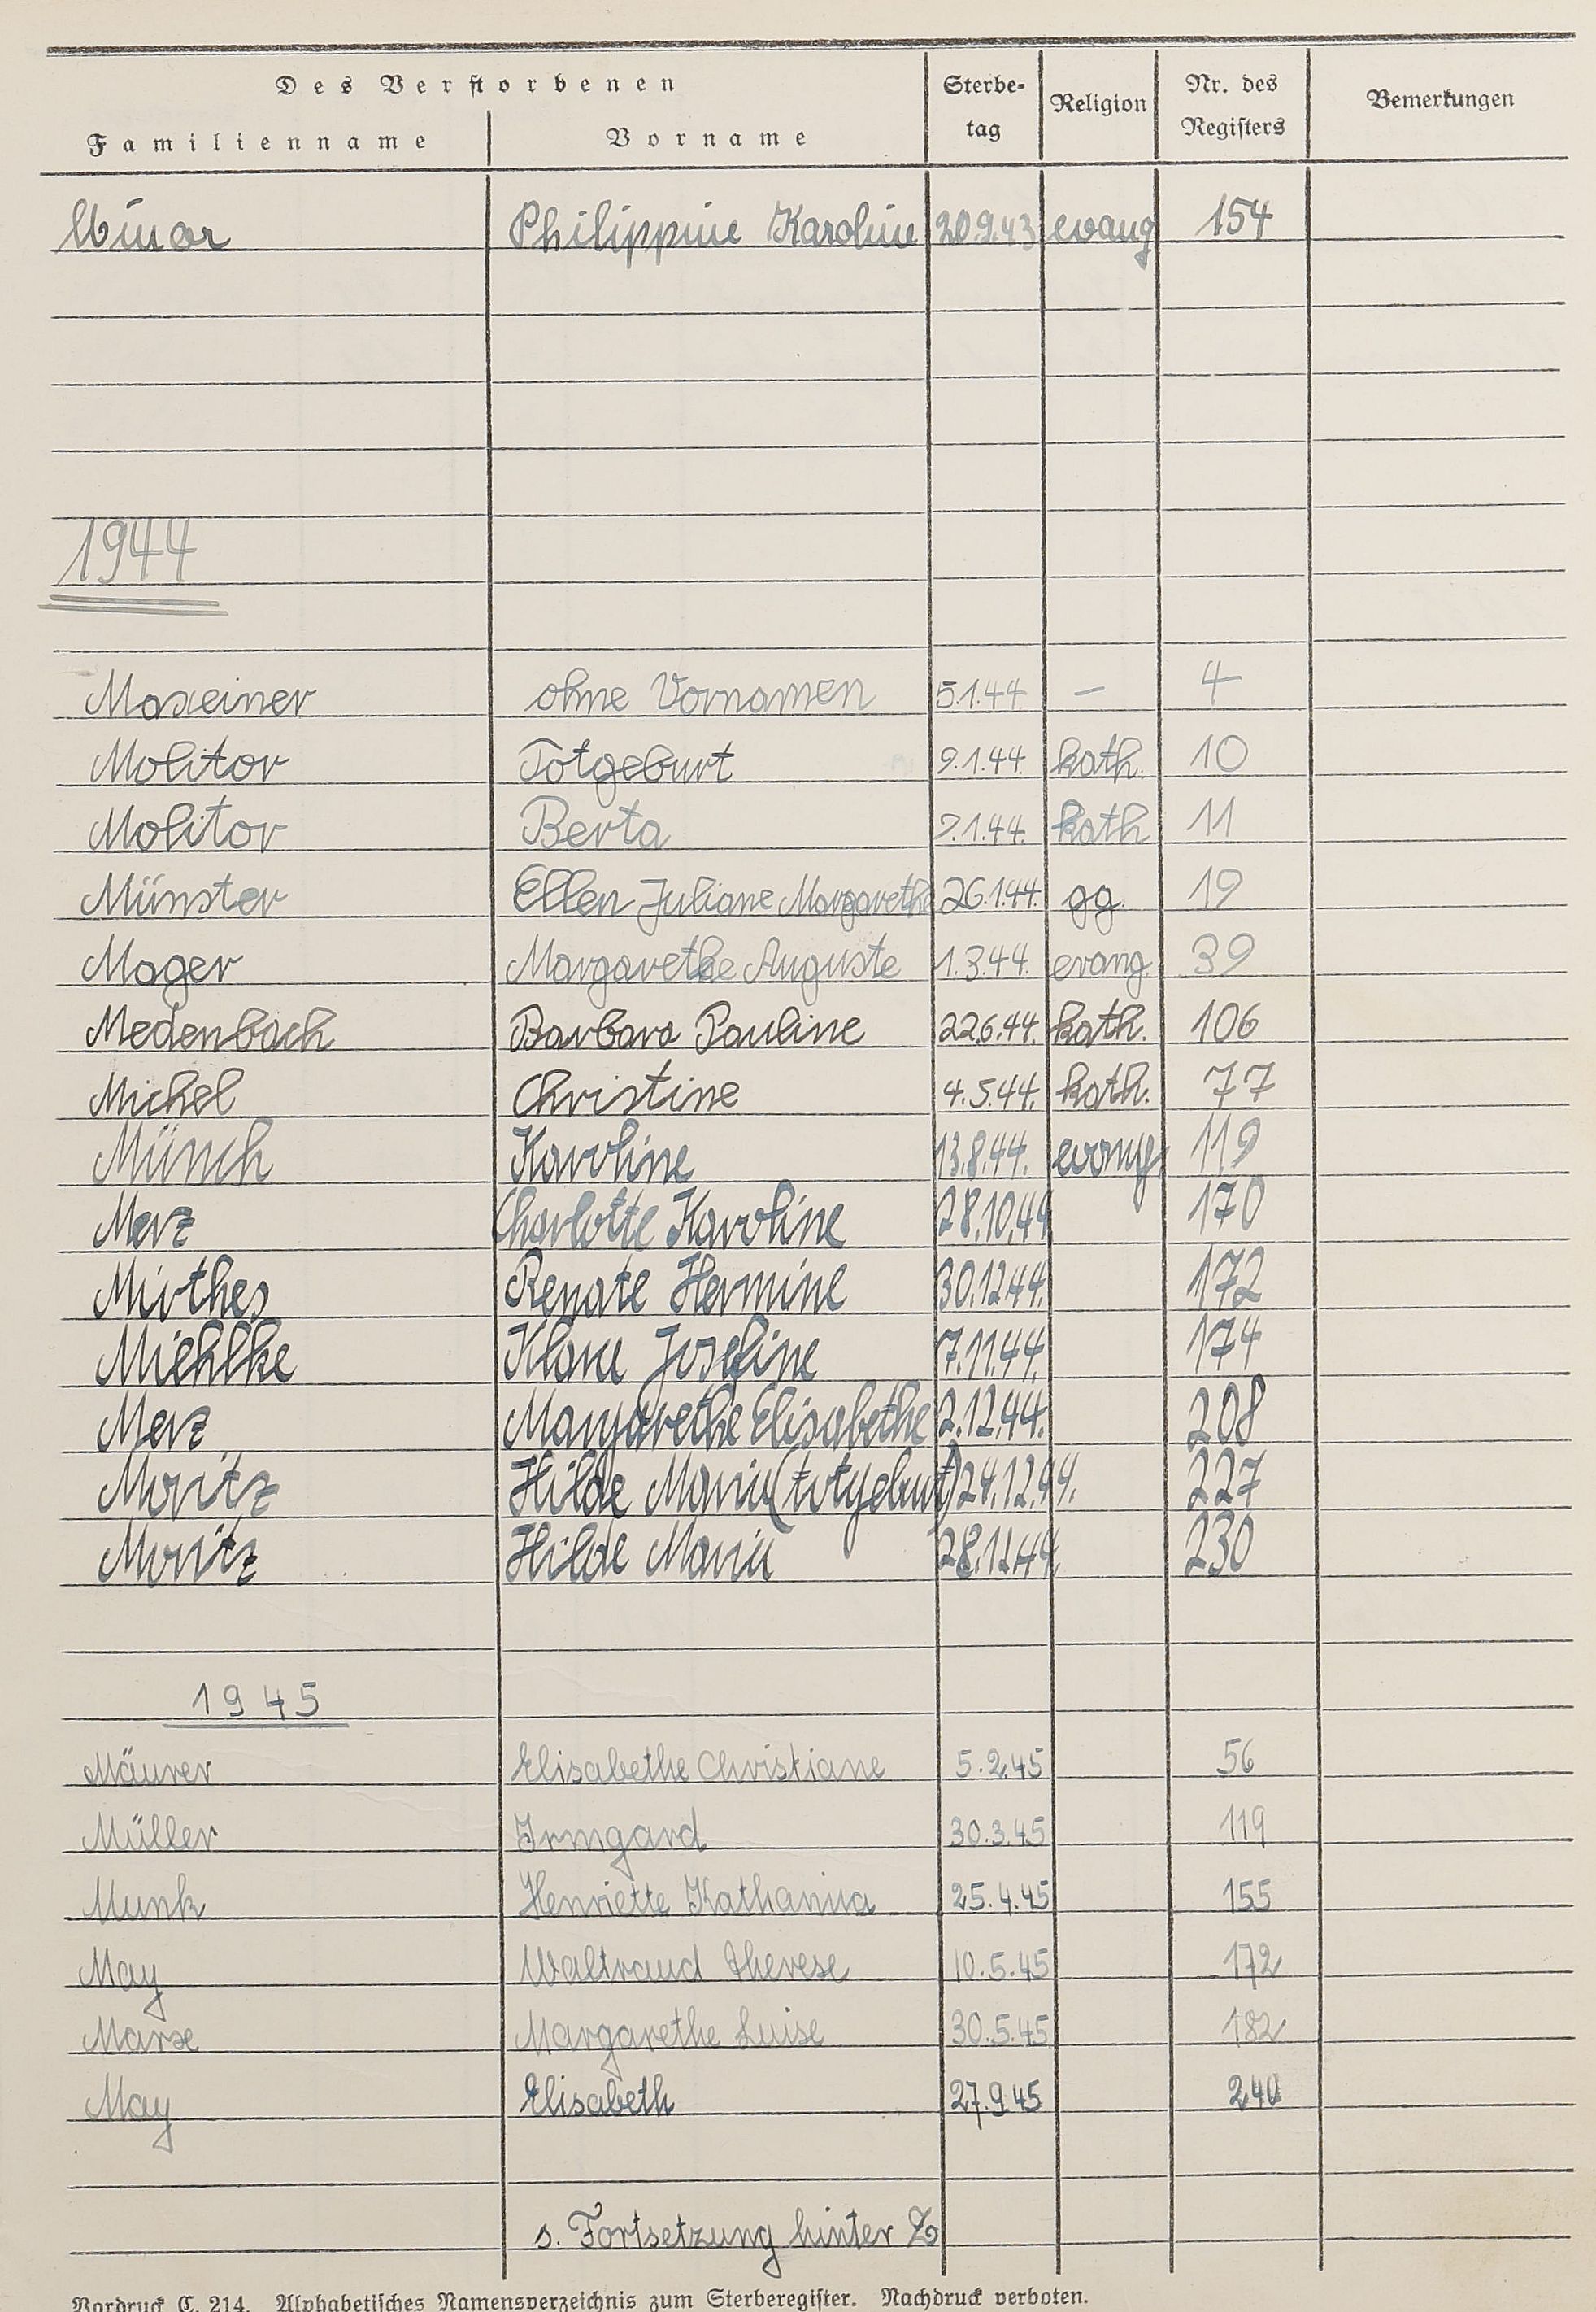 Des Verstorbenen
Familienname Vorname Sterbe-tag Religion Nr. des Registers Bemerkungen
Philippine Karoline 20.9.43 evang 154
1944
Maxeiner ohne Vornamen 5.1.44 – 4
Molitor Totgeburt 9.1.44 kath. 10
Molitor Berta 9.1.44. kath 11
Münster Ellen Juliane Margarethe 26.1.44. gg. 19
Mager Margarethe Auguste 1.3.44. evang. 39
Medenbach Barbara Pauline 22.6.44. kath. 106
Michel Christine 4.5.44. kath. 77
Münch Karoline 13.8.44. evang. 119
Merz Charlotte Karoline 28.10.44 170
Mirthes Renate Hermine 30.12.44. 172
Miehlke Klara Josefine 7.11.44. 174
Merz Margarethe Elisabethe 2.12.44. 208
Moritz Hilde Maria (totgeburt) 24.12.44. 227
Moritz Hilde Maria 28.12.44. 230
1945
Mäurer Elisabethe Christiane 5.2.45 56
Müller Irmgard 30.3.45 119
Munk Henriette Katharina 25.4.45 155
May Waltraud Therese 10.5.45 172
Marx Margarethe Luise 30.5.45 182
May Elisabeth 27.9.45 240
s. Fortsetzung hinter Z
Vordruck C. 214. Alphabetisches Namensverzeichnis zum Sterberegister. Nachdruck verboten.